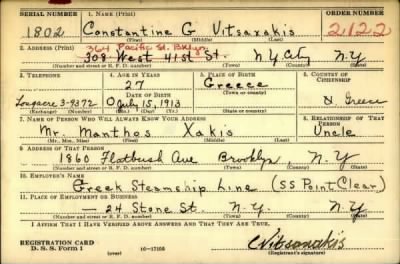 SERIAL NUMBER 1. NAME (Print) ORDER NUMBER
1802 Constantine G Vitsaxakis 2122
(First) (Middle) (Last)
2. ADDRESS (Print) 364 Pacific St. Bklyn.
308 West 41st St. N.Y. City N.Y
(Number and street or R. F. D. number) (Town) (County) (State)
3. TELEPHONE 4. AGE IN YEARS 5. PLACE OF BIRTH 6. COUNTRY OF CITIZENSHIP
27 Greece
DATE OF BIRTH (Town or county)
Longacre 3-9372 July 15, 1913 Greece
(Exchange) (Number) (Mo.) (Day) (Yr.) (State or country)
7. NAME OF PERSON WHO WILL ALWAYS KNOW YOUR ADDRESS 8. RELATIONSHIP OF THAT PERSON
Mr. Manthos Xakis Uncle
(Mr., Mrs., Miss) (First) (Middle) (Last)
9. ADDRESS OF THAT PERSON
1860 Flatbush Ave Brooklyn, N.Y
(Number and street or R. F. D. number) (Town) (County) (State)
10. EMPLOYER'S NAME
Greek Steamship Line (SS Point Clear)
11. PLACE OF EMPLOYMENT OR BUSINESS
— 24 Stone St. N.Y. N.Y
(Number and street or R. F. D. number) (Town) (County) (State)
I AFFIRM THAT I HAVE VERIFIED ABOVE ANSWERS AND THAT THEY ARE TRUE.
REGISTRATION CARD
D. S. S. Form 1 (over) 16-17105 (Registrant's signature)